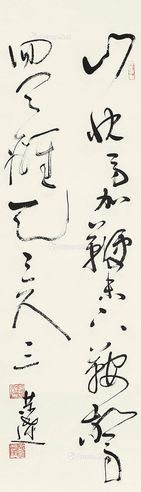 山快马加鞭未下鞍惊
回首离天三尺三